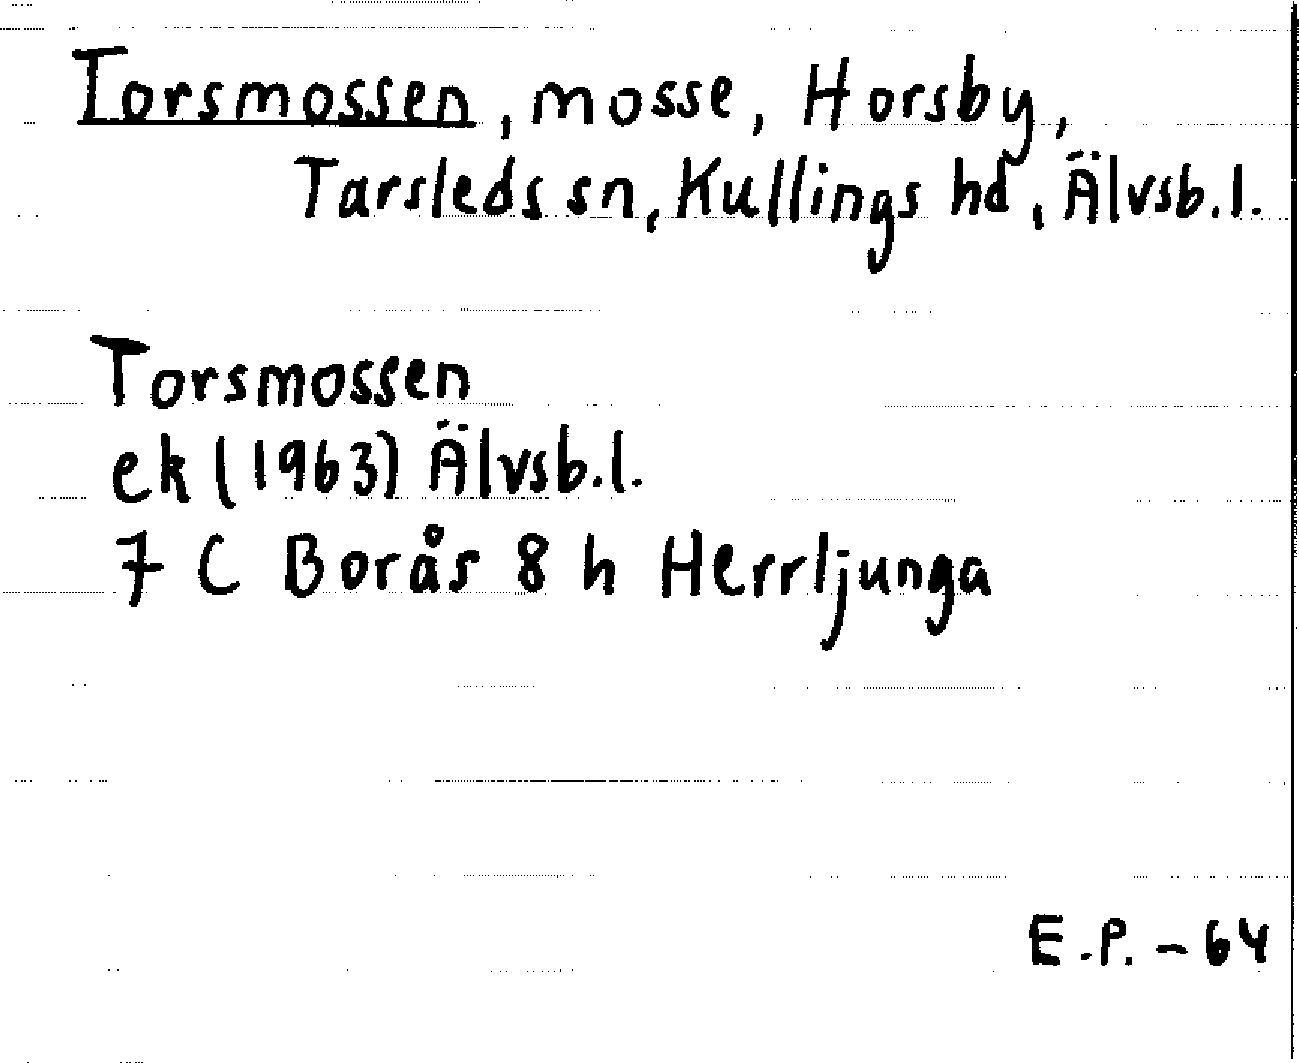 Torsmossen, mosse, Horsby,
Tarsleds sn, Kullings hd, Älvsb.l.
Torsmossen
ek (1963) Älvsb.l.
7 C Borås 8 h Herrljunga
E.P. - 64